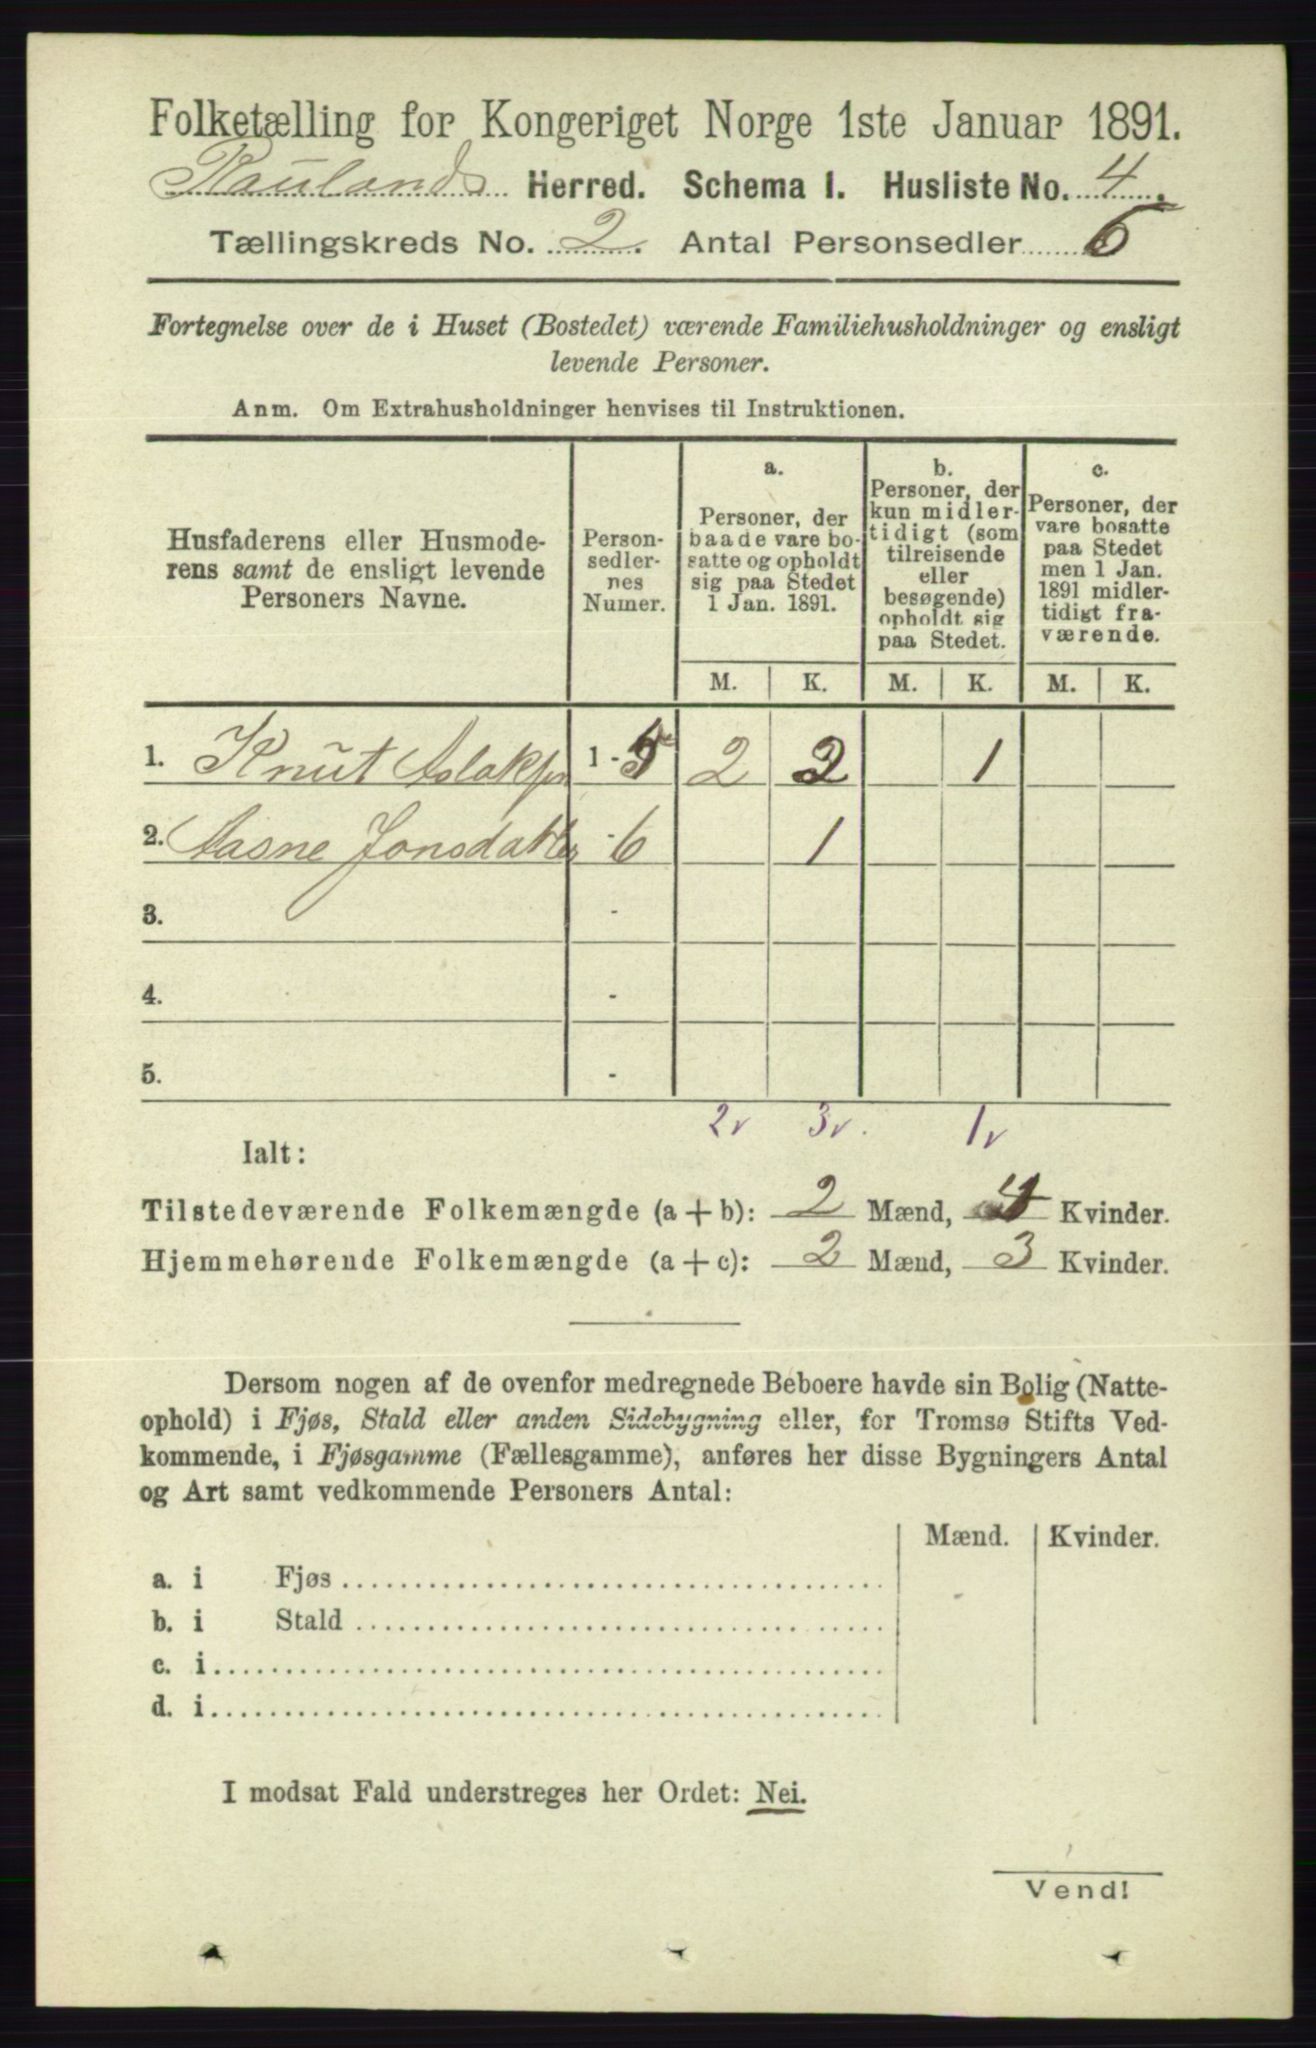 Folketælling for Kongeriget Norge 1ste Januar 1891.
Raulands Herred. Schema I. Husliste No. 4.
Tællingskreds No. 2. Antal Personsedler 6
Fortegnelse over de i Huset (Bostedet) værende Familiehusholdninger og ensligt
levende Personer.
Anm. Om Extrahusholdninger henvises til Instruktionen.
Husfaderens eller Husmode-
rens samt de ensligt levende
Personers Navne.
Person-
sedler-
nes
Numer.
a.
Personer, der
baade vare bo-
satte og opholdt
sig paa Stedet
1 Jan. 1891.
b.
Personer, der
kun midler-
tidigt (som
tilreisende
eller
besøgende)
opholdt sig
paa Stedet.
c.
Personer, der
vare bosatte
paa Stedet
men 1 Jan.
1891 midler-
tidigt fra-
værende.
M. K. M. K. M. K.
1. Knut Aslaksen 1 - 5 2 2 1
2. Aasne Jonsdatter - 6 1
3. -
4. -
5. -
2v 3v. 1v
Ialt:
Tilstedeværende Folkemængde (a + b): 2 Mænd, 4 Kvinder.
Hjemmehørende Folkemængde (a + c): 2 Mænd, 3 Kvinder.
Dersom nogen af de ovenfor medregnede Beboere havde sin Bolig (Natte-
ophold) i Fjøs, Stald eller anden Sidebygning eller, for Tromsø Stifts Ved-
kommende, i Fjøsgamme (Fællesgamme), anføres her disse Bygningers Antal
og Art samt vedkommende Personers Antal:
Mænd. Kvinder.
a. i Fjøs
b. i Stald
c. i
d. i
I modsat Fald understreges her Ordet: Nei.
Vend!